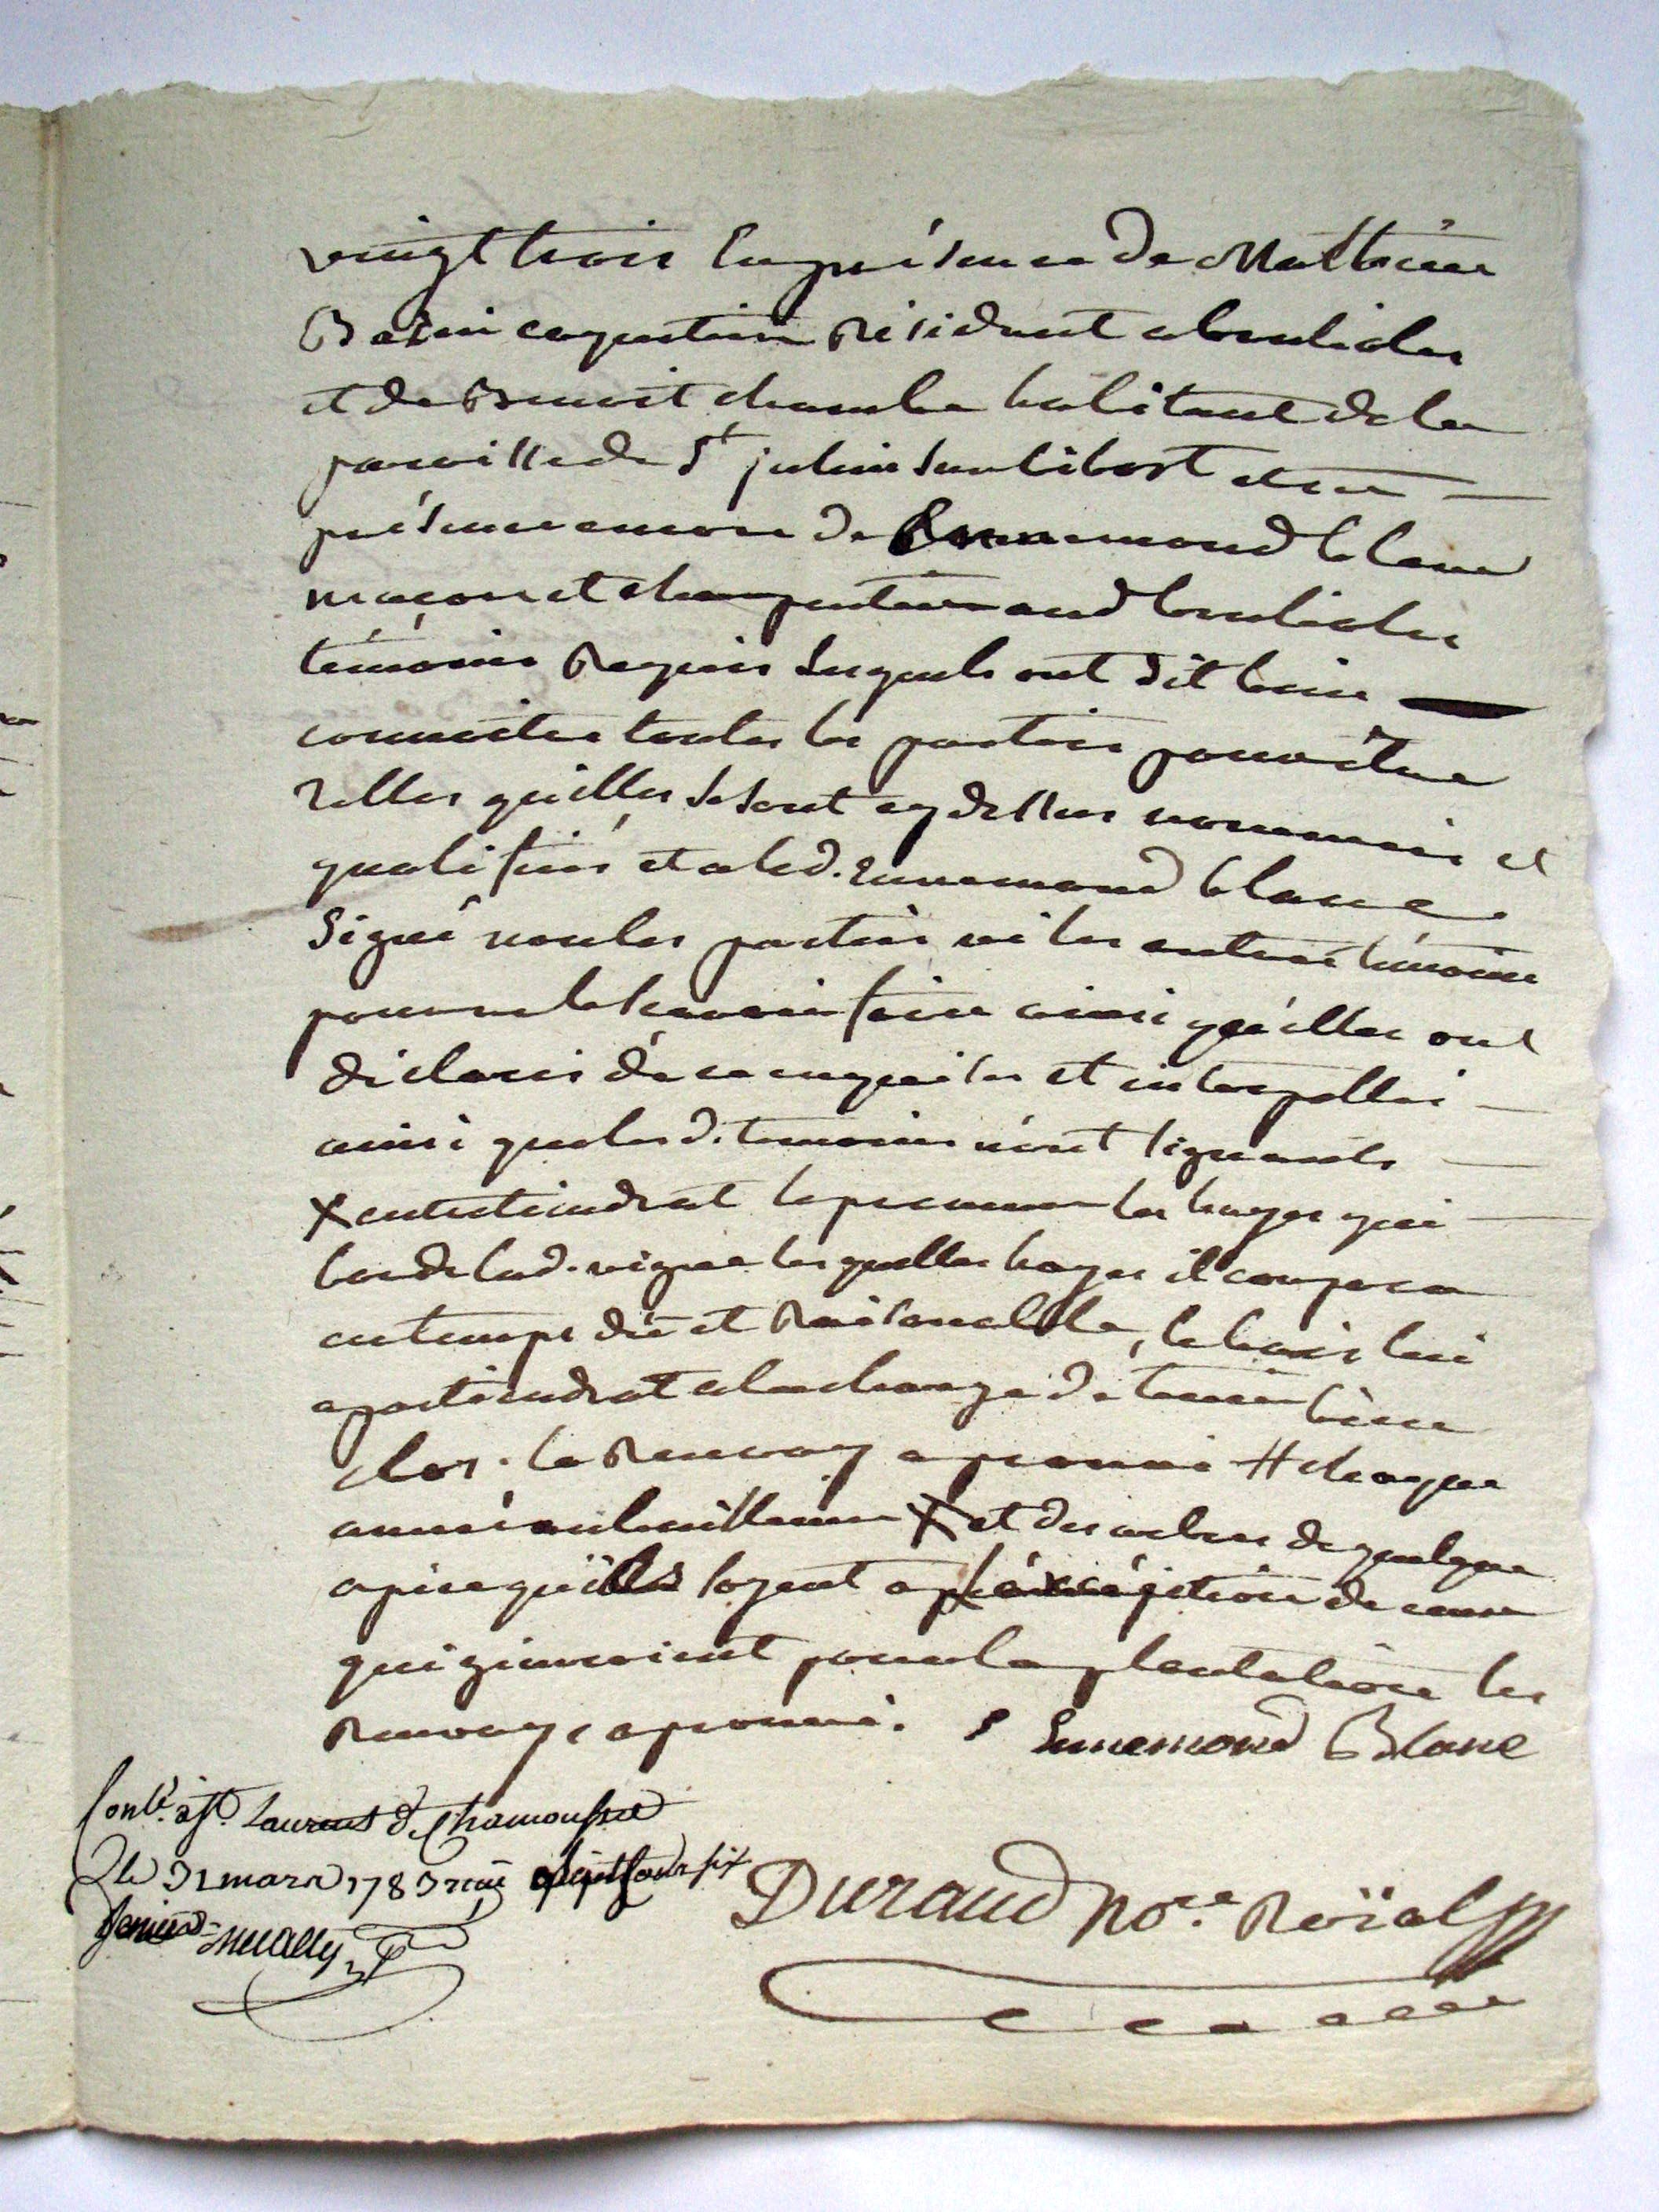 vingt trois En présence de Matthieu
Bazin charpentier Résidant
et de Benoit chambe habitant de la
paroisse de St julien sur bibost et en
présence encore de Ennemond blanc
maçon et charpentier aud
témoins Requis Lesquels ont dit bien
connoitre toutes les parties pour être
telles quelles se sont cy dessus nommées et
qualifiées et a led. Ennemond blanc
Signé non les parties ni les autres témoins
pour ne le scavoir faire ainsi qu'elles ont
déclarés de ce enquises et interpellés
ainsi que les d. temoins non signants
X entretiendrat le preneur les hayes qui
borde lad. vigne lesquelles hayes il coupera
en temps dû et Raisonable, le bois lui
apartiendrat a la charge de tenir bien
clos. le Renvoy aprouvé # chaque
année X et des arbres de quelque
espice qu'ils soyent a l'éxcéption de ceux
qui pour la plantation les
Renvoys aprouvé. Ennemond Blanc
Conlé. à St. Laurent de Chamousset
Le 31 mars 1783 reçu six
deniers
Durand Nore. Roïal